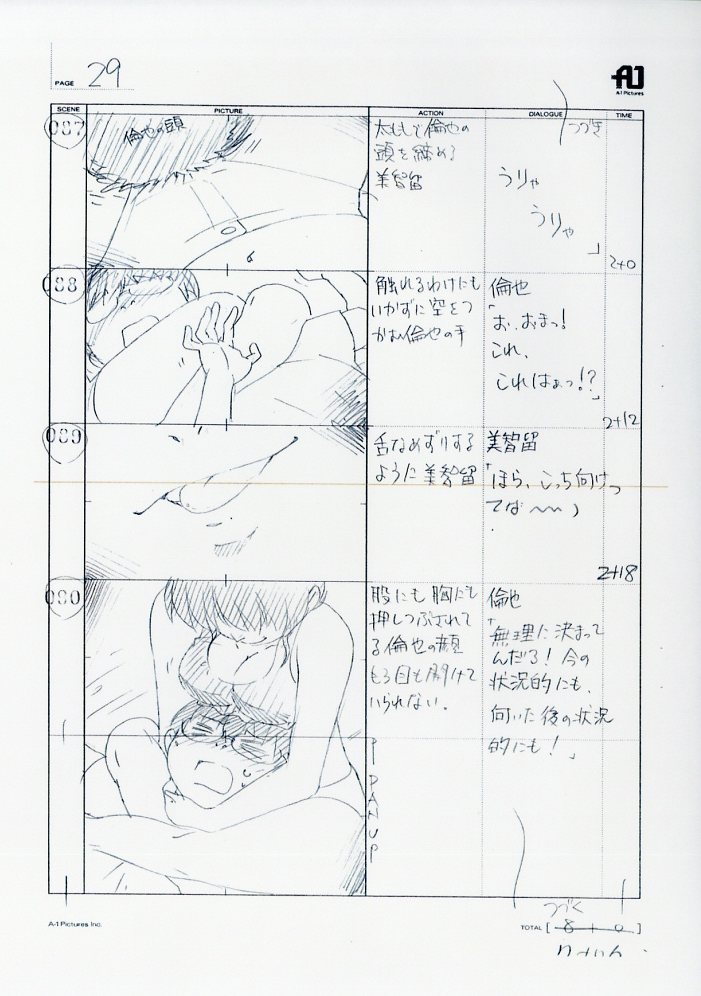 PAGE 29
A-1 Pictures
SCENE PICTURE ACTION DIALOGUE TIME
087
倫也の頭
太ももで倫也の
頭を締める
美智留
つづき
うりゃ
うりゃ
」
2+0
088
触れるわけにも
いかずに空をつ
かむ倫也の手
倫也
「お、おまっ!
これ、
これはぁっ!?」
2+12
089
舌なめずりする
ように美智留
美智留
「ほら、こっち向けっ
てば〜〜」
2+18
090
股にも胸にも
押しつぶされて
る倫也の顔
もう目も開けて
いられない。
倫也
「無理に決まって
んだろ!今の
状況的にも、
向いた後の状況
的にも!」
PAN UP
つづく
A-1 Pictures Inc.
TOTAL [ 8 + 0 ]